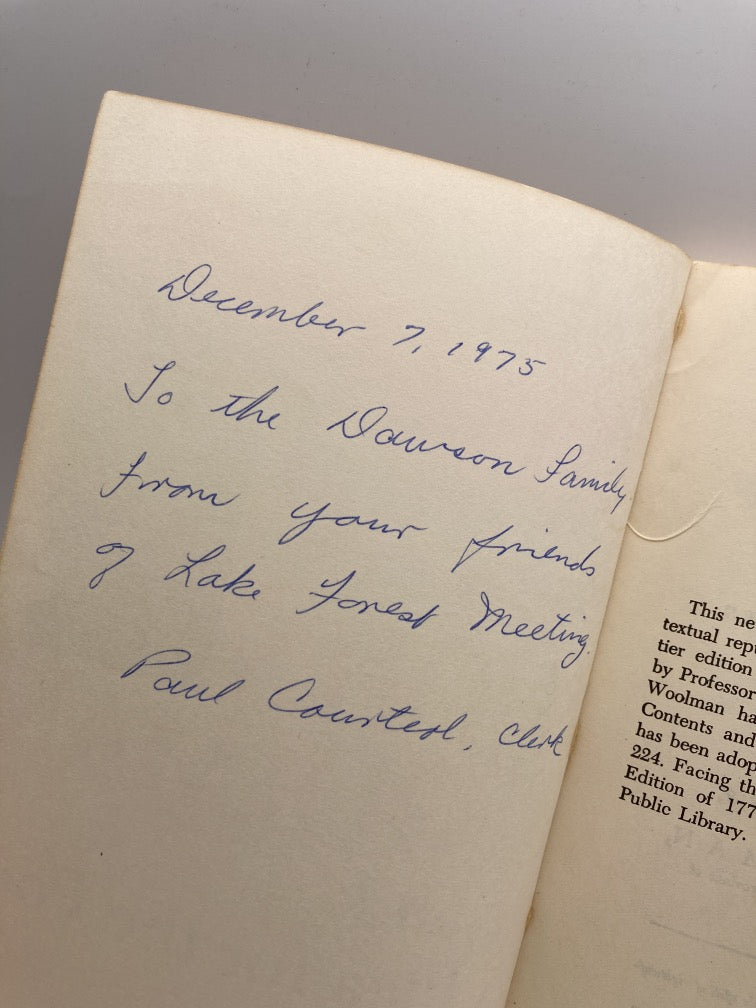 December 7, 1975
To the Dawson Family
from your friends
of Lake Forest Meeting.
Paul , Clerk
This ne
textual repu
tier edition
by Professor
Woolman ha
Contents and
has been adop
224. Facing th
Edition of 177
Public Library.